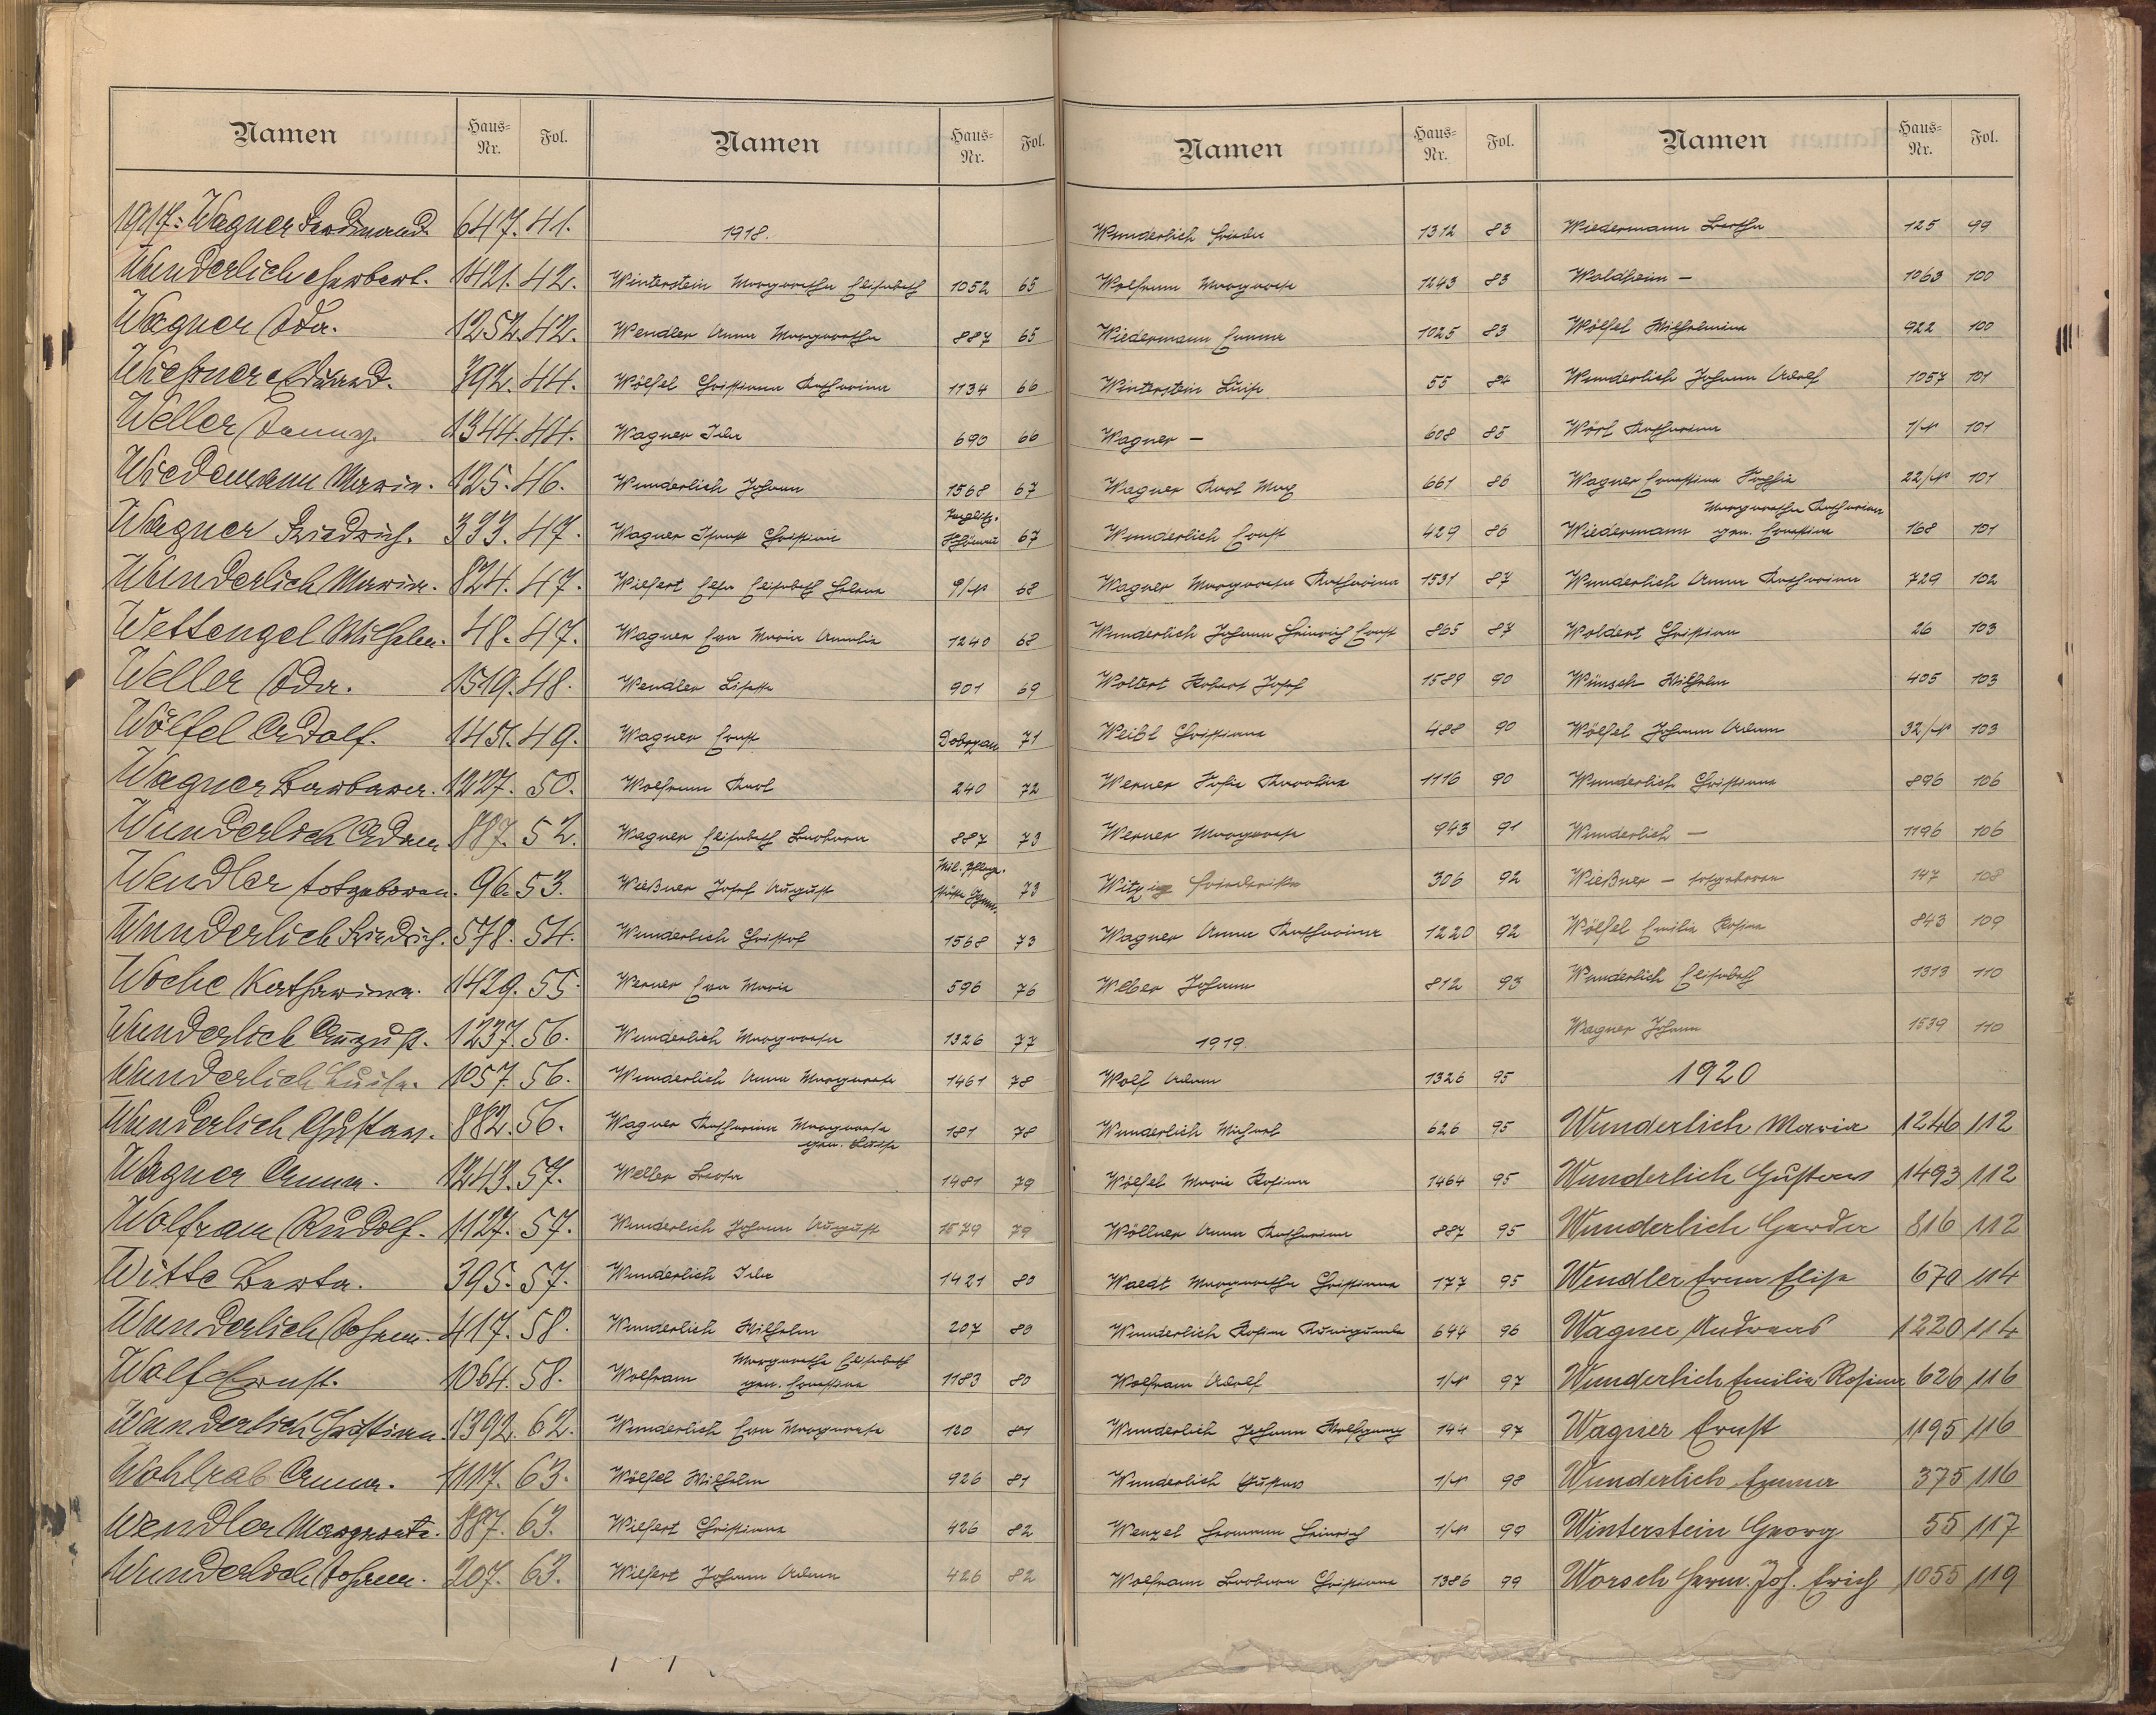 Namen Haus-Nr. Fol.
1917: Wagner Ferdinand 647. 41.
Wunderlich Herbert. 1421. 42.
Wagner Ida. 1252. 42.
Wießner Eduard. 392. 44.
Weller Fanny. 1344. 44.
Wiedemann Maria. 125. 46.
Wagner Friedrich. 333. 47.
Wunderlich Maria. 824. 47.
Wettengel Wilhelm. 48. 47.
Weller Ida. 1519. 48.
Wölfel Adolf. 1451. 49.
Wagner Barbara. 1227. 50.
Wunderlich Adam 887. 52.
Wendler totgeboren. 96. 53.
Wunderlich Friedrich. 578. 54.
Woche Katharina. 1429. 55.
Wunderlich August. 1237. 56.
Wunderlich Luise. 1057. 56.
Wunderlich Gustav. 882. 56.
Wagner Anna. 1243. 57.
Wolfram Rudolf. 1127. 57.
Witte Berta. 395. 57.
Wunderlich Johann. 417. 58.
Wolf Ernst. 1064. 58.
Wunderlich Christiana. 1392. 62.
Wohlrab Anna. 1117. 63.
Wendler Margareta. 887. 63.
Wunderlich Johann. 207. 63.
Namen Haus-Nr. Fol.
1918.
Winterstein Margaretha Elisabeth 1052 65
Wendler Anna Margaretha 887 65
Wölfel Christiana Katharina 1134 66
Wagner Ida 690 66
Wunderlich Johann 1568 67
Wagner Christine 67
Wilfert Elsa Elisabeth Helena 9/N 68
Wagner Eva Maria Amalia 1240 68
Wendler Lisette 901 69
Wagner Ernst Dobrzan 71
Wolfrum Karl 240 72
Wagner Elisabeth Barbara 887 73
Wießner Josef August 73
Wunderlich Christof 1568 73
Werner Eva Maria 596 76
Wunderlich Margareta 1326 77
Wunderlich Anna Margareta 1461 78
Wagner Katharina Margareta 181 78
gen. Luise
Weller Berta 1481 79
Wunderlich Johann August 1579 79
Wunderlich Ida 1421 80
Wunderlich Wilhelm 207 80
Wolfram Margaretha Elisabeth
gen. Ernestine 1183 80
Wunderlich Eva Margareta 120 81
Wölfel Wilhelm 926 81
Wilfert Christiana 426 82
Wilfert Johann Adam 426 82
Namen Haus-Nr. Fol.
Wunderlich Frieda 1312 83
Wolfrum Margareta 1243 83
Wiedermann Emma 1025 83
Winterstein Luise 55 84
Wagner — 608 85
Wagner Karl Max 661 86
Wunderlich Ernst 429 86
Wagner Margareta Katharina 1531 87
Wunderlich Johann Heinrich Ernst 865 87
Woltert Robert Josef 1589 90
Weibl Christiana 488 90
Werner Sofie Karolina 1116 90
Werner Margareta 943 91
Witzig Friederike 306 92
Wagner Anna Katharina 1220 92
Weber Johann 812 93
1919.
Wolf Adam 1326 95
Wunderlich Michael 626 95
Wölfel Maria Rosina 1464 95
Wöllner Anna Katharina 887 95
Waedt Margaretha Christiana 177 95
Wunderlich Rosina Kunigunda 644 96
Wolfram Adolf 1/N 97
Wunderlich Johann Wolfgang 144 97
Wunderlich Gustav 1/N 98
Wenzel Hermann Heinrich 1/N 99
Wolfram Barbara Christiana 1386 99
Namen Haus-Nr. Fol.
Wiedermann Bertha 125 99
Waldheim — 1063 100
Wölfel Wilhelmina 922 100
Wunderlich Johann Adolf 1057 101
Wörl Katharina 1/N 101
Wagner Ernestine Sophie 22/N 101
Margaretha Katharina
Wiedermann gen. Ernestine 168 101
Wunderlich Anna Katharina 729 102
Woldert Christian 26 103
Wünsch Wilhelm 405 103
Wölfel Johann Adam 32/N 103
Wunderlich Christiana 896 106
Wunderlich — 1196 106
Wießner — totgeboren 147 108
Wölfel Emilie Rosina 843 109
Wunderlich Elisabeth 1313 110
Wagner Johann 1539 110
1920
Wunderlich Maria 1246 112
Wunderlich Gustav 1493 112
Wunderlich Gerda 816 112
Wendler Erna Elise 670 114
Wagner Andreas 1220 114
Wunderlich Emilie Rosina 626 116
Wagner Ernst 1195 116
Wunderlich Emma 375 116
Winterstein Georg 55 117
Worsch Herm. Joh. Erich 1055 119